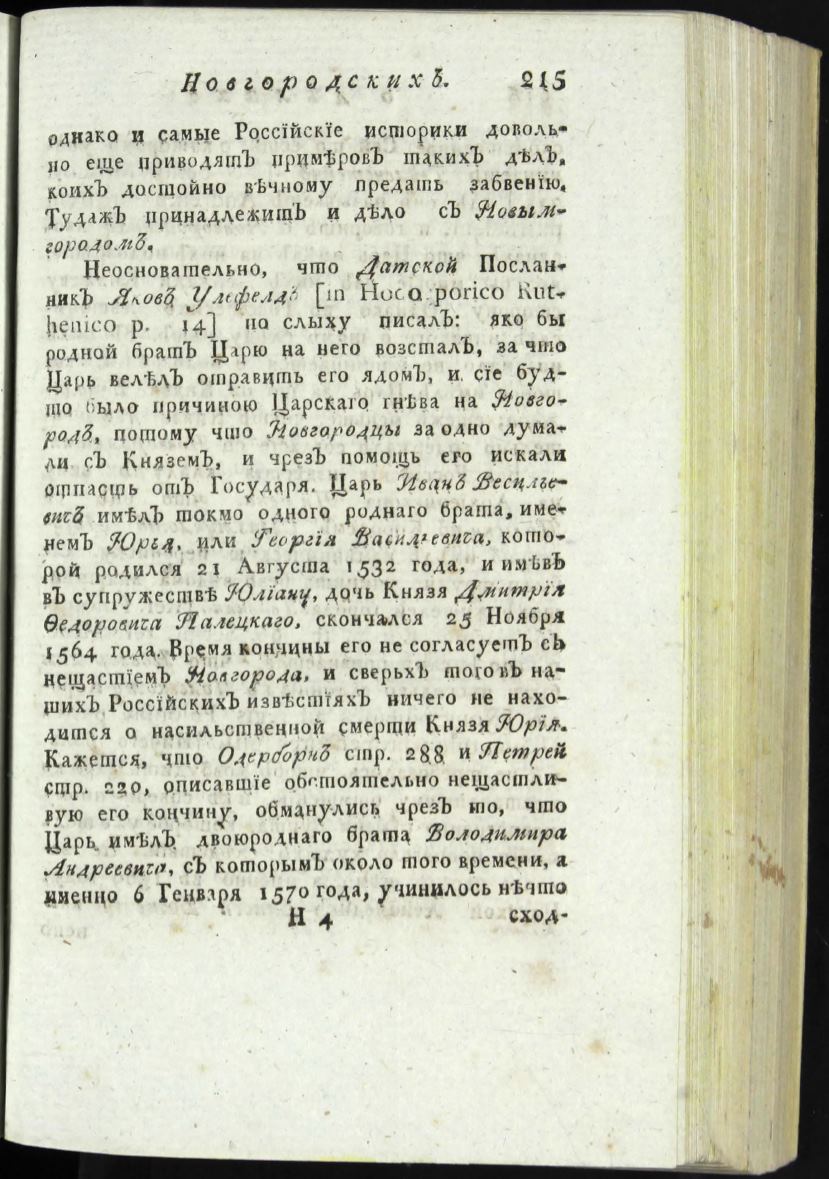 Новгородскихъ. 215
однако и самые Россїйскїе историки доволь-
но еще приводятъ примѣровъ такихъ дѣлъ,
коихъ достойно вѣчному предать забвенїю.
Тудажъ принадлежитъ и дѣло съ Новым-
городомъ.
Неосновательно, что Датской Послан-
никъ Яковъ Улефелдъ [in Hoco porico Rut-
henico p. 14] по слыху писалъ: яко бы
родной братъ Царю на него возсталъ, за что
Царь велѣлъ отравить его ядомъ, и сїе буд-
то было причиною Царскаго гнѣва на Новго-
родъ, потому что Новгородцы за одно дума-
ли съ Княземъ, и чрезъ помощь его искали
отпасть отъ Государя. Царь Иванъ Весилье-
вичъ имѣлъ токмо одного роднаго брата, име-
немъ Юрья, или Георгїя Васильевича, кото-
рой родился 21 Августа 1532 года, и имѣвъ
въ супружествѣ Юлїану, дочь Князя Дмитрїя
Ѳедоровича Палецкаго, скончался 25 Ноября
1564 года. Время кончины его не согласуетъ съ
нещастїемъ Новгорода, и сверьхъ того въ на-
шихъ Россїйскихъ извѣстїяхъ ничего не нахо-
дится о насильственной смерти Князя Юрїя.
Кажется, что Одерборнъ стр. 288 и Петрей
стр. 220, описавшїе обстоятельно нещастли-
вую его кончину, обманулись чрезъ то, что
Царь имѣлъ двоюроднаго брата Володимира
Андреевича, съ которымъ около того времени, а
именно 6 Генваря 1570 года, учинилось нѣчто
Н 4 сход-